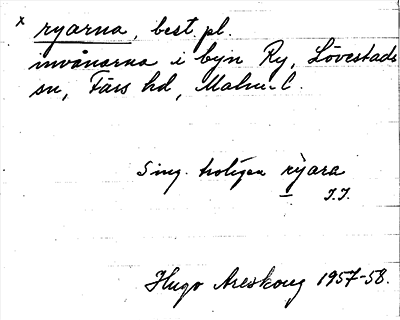 x ryarna, best. pl.
invånarna i byn Ry, Lövestads
sn, Färs hd, Malm. l.
Sing. troligen ryara
I.I.
Hugo Areskoug 1957-58.